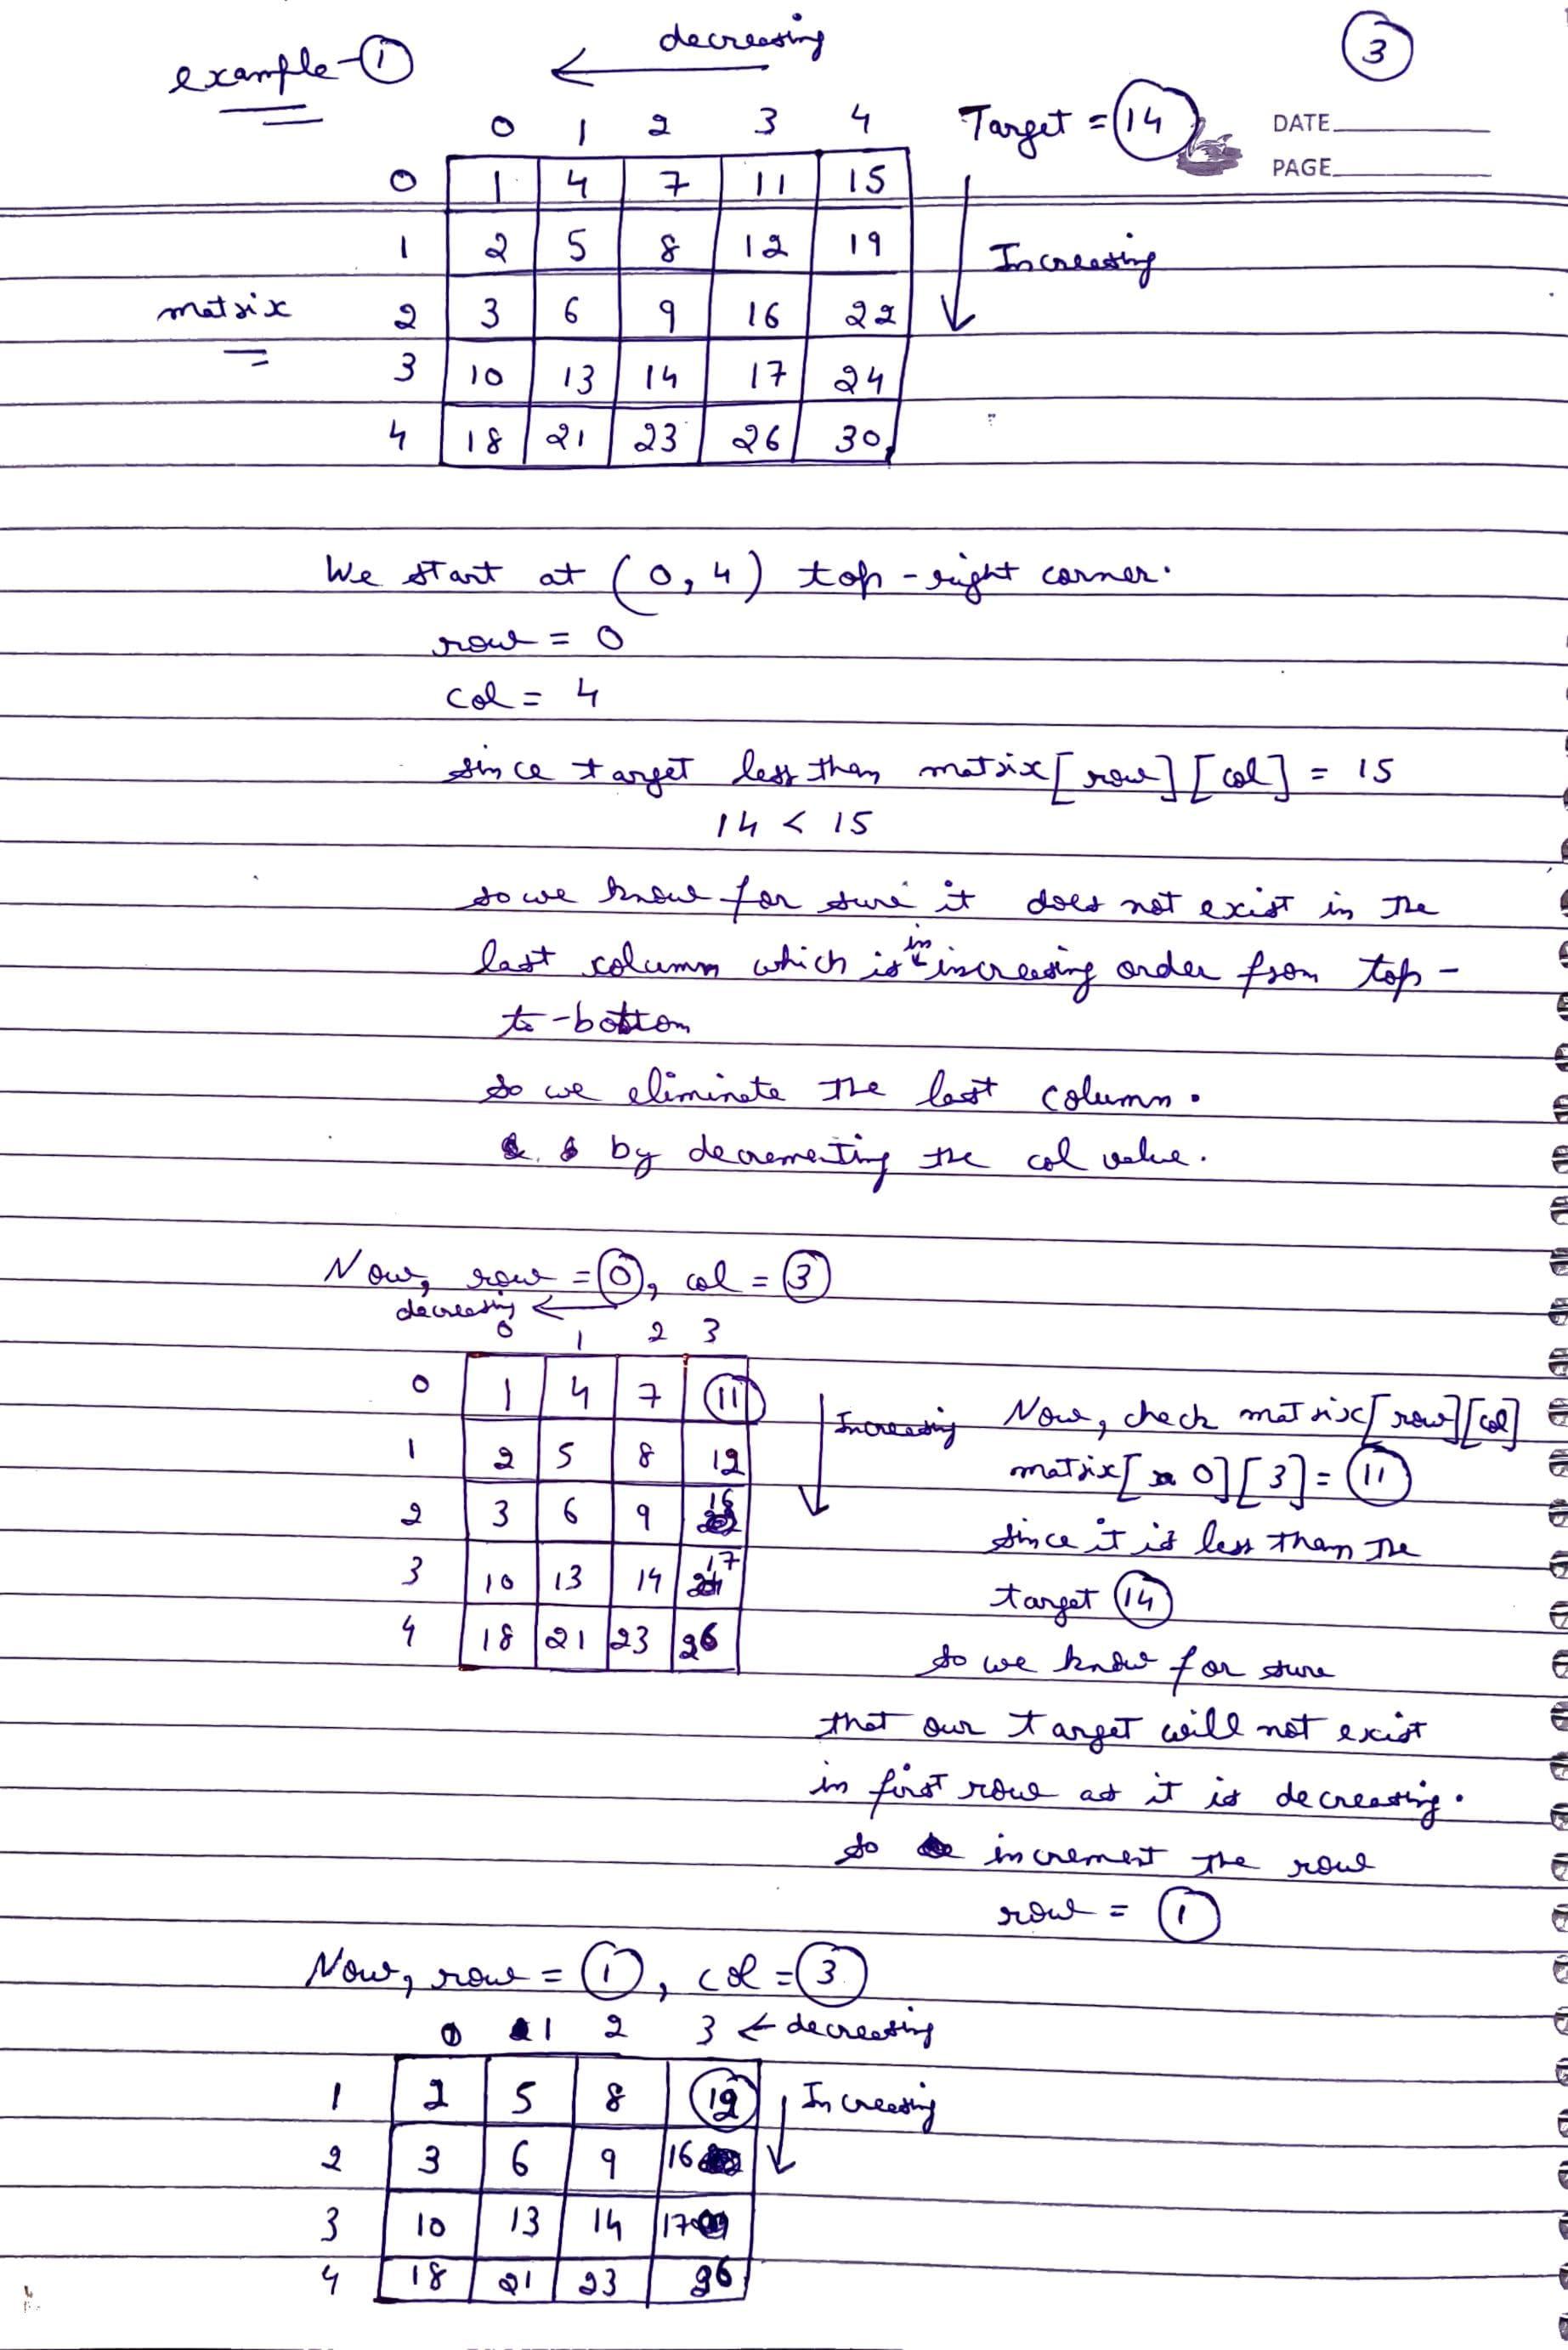 3
example-1
decreasing
Target = 14
DATE
PAGE
0 1 2 3 4
0 1 4 7 11 15
1 2 5 8 12 19 Increasing
matrix 2 3 6 9 16 22
3 10 13 14 17 24
4 18 21 23 26 30
We start at (0, 4) top-right corner.
row = 0
col = 4
since target less than matrix[row][col] = 15
14 < 15
so we know for sure it does not exist in the
last column which is in increasing order from top-
to-bottom
so we eliminate the last column.
by decrementing the col value.
Now, row = 0, col = 3
decreasing
0 1 2 3
0 1 4 7 11
1 2 5 8 12
2 3 6 9 16
3 10 13 14 17
4 18 21 23 26
Increasing
Now, check matrix[row][col]
matrix[0][3] = 11
since it is less than the
target 14
so we know for sure
that our target will not exist
in first row as it is decreasing.
so increment the row
row = 1
Now, row = 1, col = 3
0 1 2 3 decreasing
1 2 5 8 12 Increasing
2 3 6 9 16
3 10 13 14 17
4 18 21 23 26